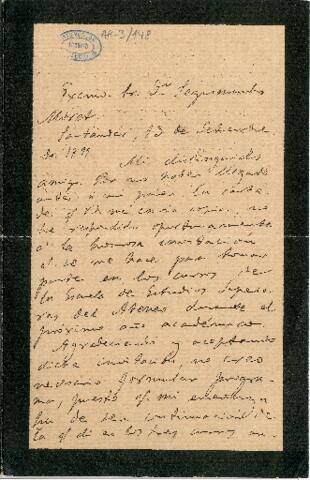 AR-3/148
Excmo. Sr. Dn. Segismundo
Moret.
Santander, 13 de Setiembre
de 1899
Mi distinguido
amigo: Por no haber llegado
antes á mi poder la carta
de q. V. me envia copia, no
he respondido oportunamente
á la honrosa invitacion
q. se me hace para tomar
parte en los cursos de
la Escuela de Estudios Superio-
res del Ateneo durante el
próximo año académico.
Agradeciendo y aceptando
dicha invitacion, no creo
necesario formular progra-
ma, puesto q. mi enseñanza
ha de ser continuacion de
la q. di en los tres cursos an-